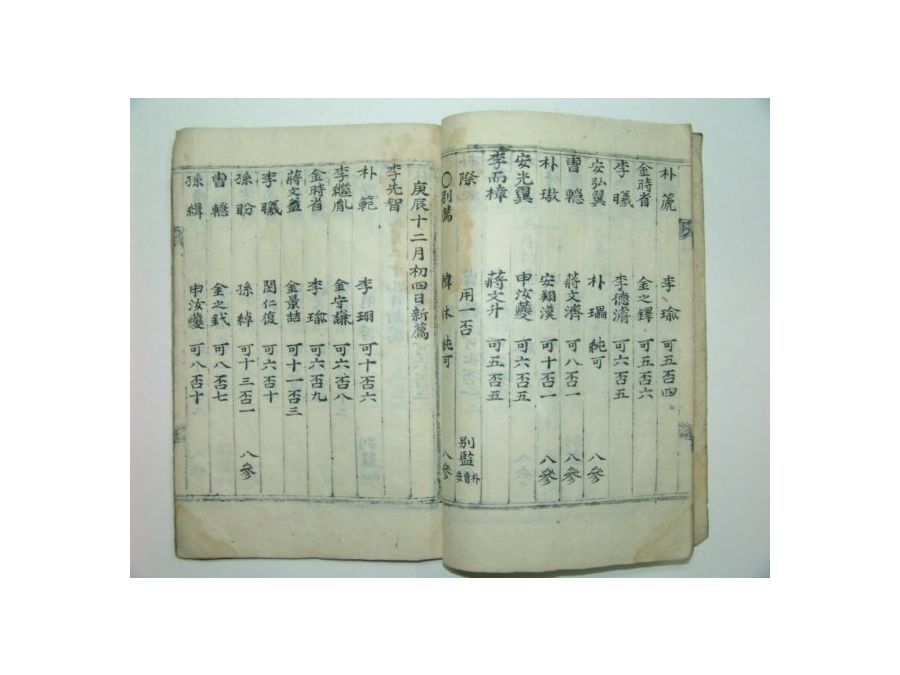 朴 箎 李 瑜 可五否四
金時省 金之鐸 可五否六
李 曦 李德濬 可六否五
安弘翼 朴 瑥 純可 八參
曹 𨏈 蔣文濟 可八否一 八參
朴 璈 安翔漢 可十否一 八參
安光翼 申汝夔 可六否五
李而樟 蔣文升 可五否五
際 用一否 別監 朴曹安
○別薦 韓 休 純可 八參
庚辰十二月初四日新薦
李先智
朴 範 李 珝 可十否六
李繼胤 金守謙 可六否八
金時省 李 瑜 可六否九
蔣文益 金景喆 可十一否三
李 曦 閔仁復 可六否十
孫 盼 孫 綽 可十三否一 八參
曹 金之釴 可八否七
孫 緝 申汝夔 可八否十